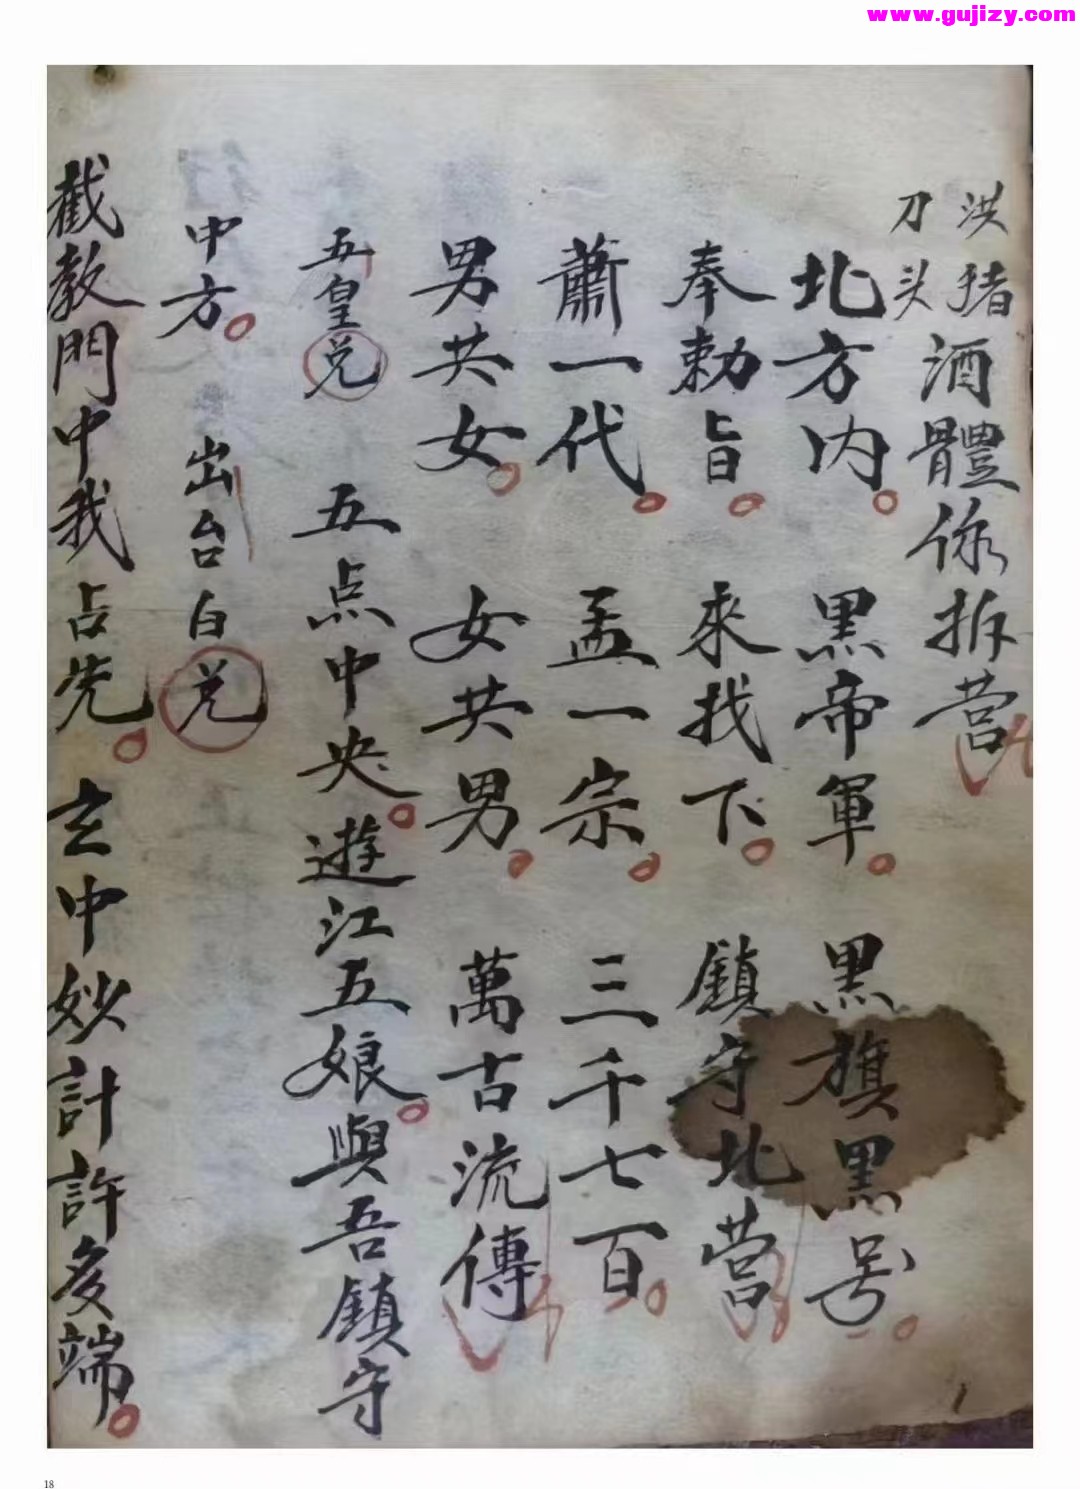 www.gujizy.com
洪猪
刀头
酒體你拆营
北方内。黑帝軍。黑旗黑号。
奉勅旨。來找下。鎮守北营
蕭一代。孟一宗。三千七百。
男共女。女共男。萬古流傳
五皇兑 五点中央。遊江五娘。與吾鎮守
中方。 出台白兑
截教門中我占先。玄中妙計許多端。
18